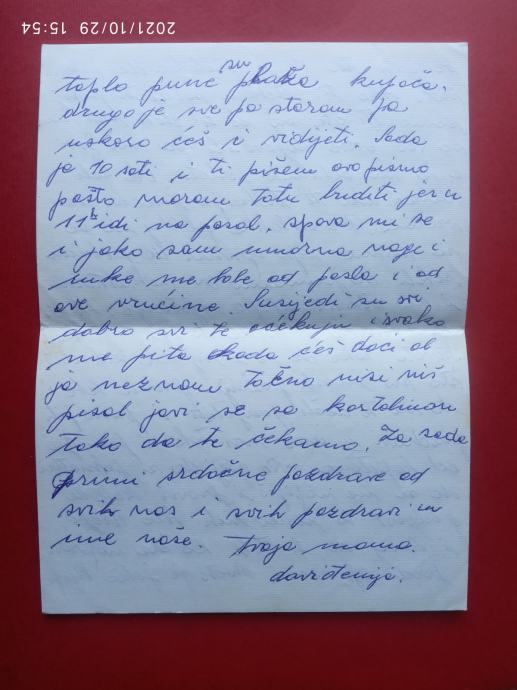 2021/10/29 15:54
toplo pune su plaža kupača.
drugo je sve po starom pa
uskoro ćeš i vidijeti. Sada
je 10 sati i ti pišem ovo pismo
pošto moram tatu buditi jer u
11h idi na posal. spava mi se
i jako sam umorna noge i
ruke me bole od posla i od
ove vrućine. Susijedi su svi
dobro svi te očekuju i svako
me pita kada ćeš doći al
ja neznam točno nisi niš
pisal javi se sa kartolinom
tako da te čekamo. Za sada
primi srdačne pozdrave od
svih nas i svih pozdravi u
ime naše. tvoja mama.
doviđenija.